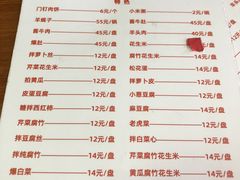 特色
门钉肉饼 6元/个
小米粥 2元/碗
羊蝎子 55元/锅
酱牛肚 45元/盘
酱牛肉 45元/盘
羊头肉 40元/盘
爆肚 45元/盘
花生米
拌萝卜丝 12元/盘
腐竹花生米 14元/盘
芹菜花生米 12元/盘
松花蛋 14元/盘
拍黄瓜 12元/盘
拌萝卜皮 12元/盘
皮蛋豆腐 12元/盘
小葱豆腐 12元/盘
糖拌西红柿 12元/盘
麻豆腐 14元/盘
芹菜腐竹 12元/盘
老虎菜 12元/盘
拌豆腐丝 12元/盘
拌白菜心 12元/盘
拌纯腐竹 14元/盘
芹菜腐竹花生米 14元/盘
爆白菜 14元/盘
黄瓜腐竹花生米 14元/盘